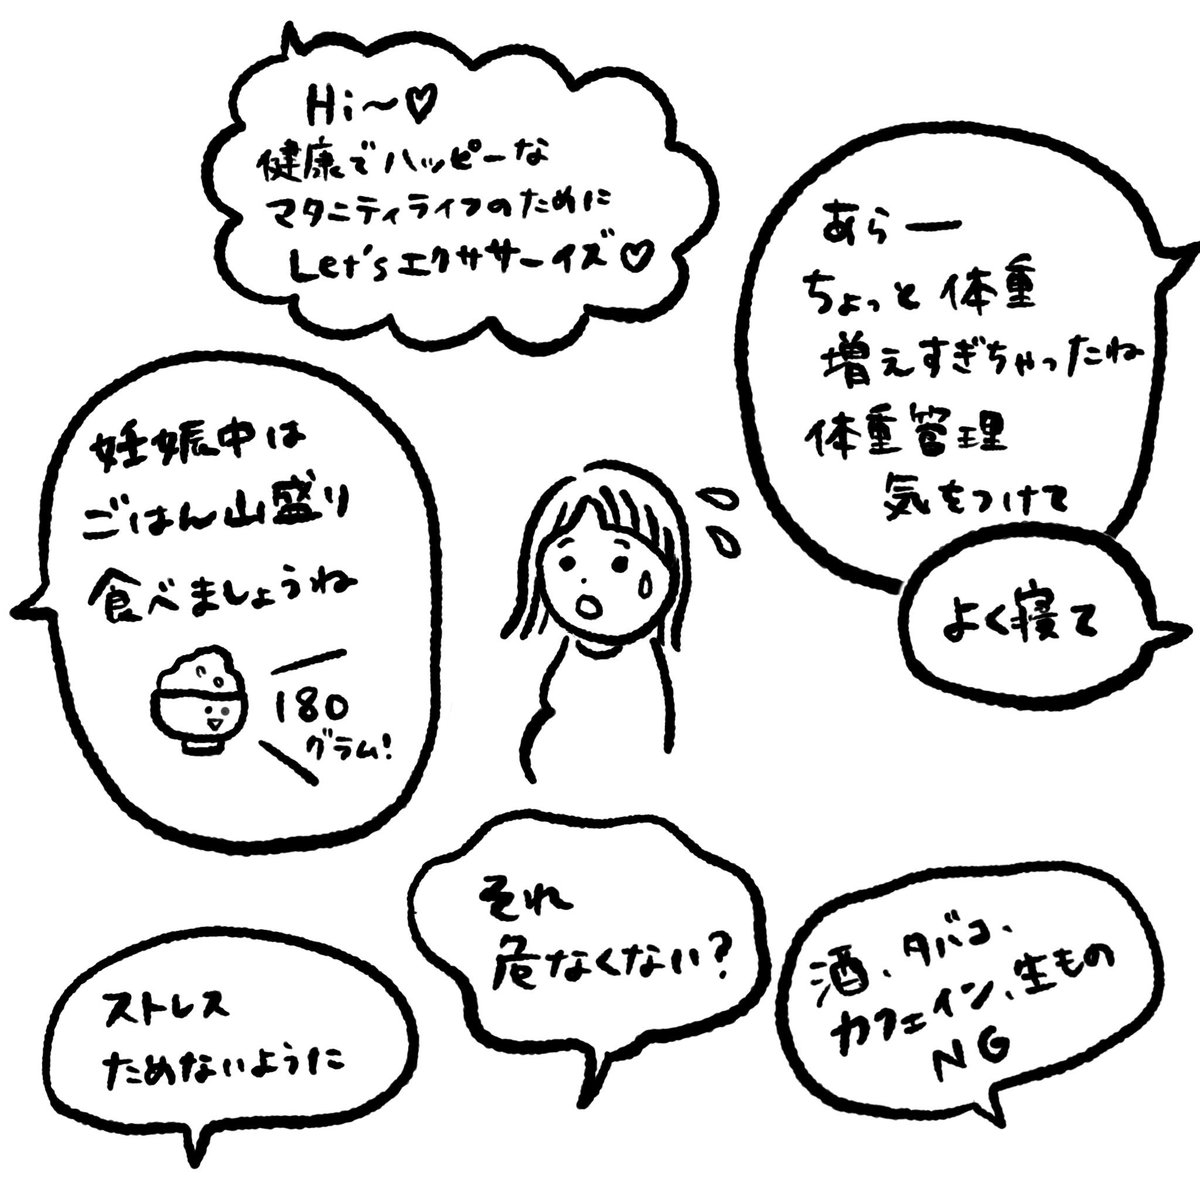 Hi〜♡
健康でハッピーな
マタニティライフのために
Let'sエクササーイズ♡
あらー
ちょっと体重
増えすぎちゃったね
体重管理
気をつけて
よく寝て
妊娠中は
ごはん山盛り
食べましょうね
180
グラム!
それ
危なくない?
酒、タバコ、
カフェイン、生もの
NG
ストレス
ためないように